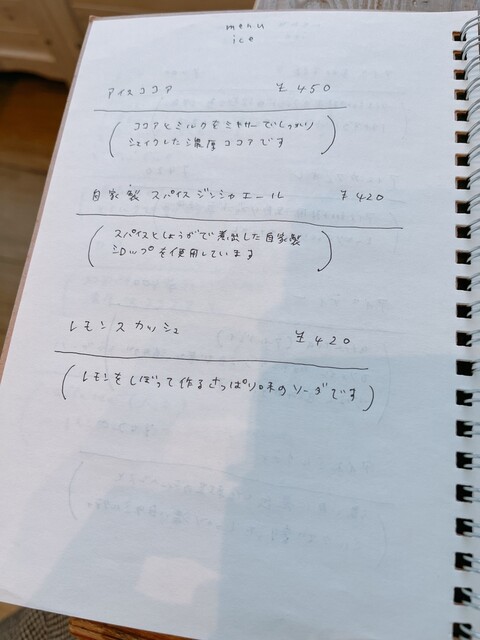 menu
ice
アイスココア ¥450
(ココアとミルクをミキサーでしっかり
シェイクした濃厚ココアです)
自家製 スパイスジンジャエール ¥420
(スパイスとしょうがで煮出した自家製
シロップを使用しています)
レモンスカッシュ ¥420
(レモンをしぼって作るさっぱり味のソーダです)